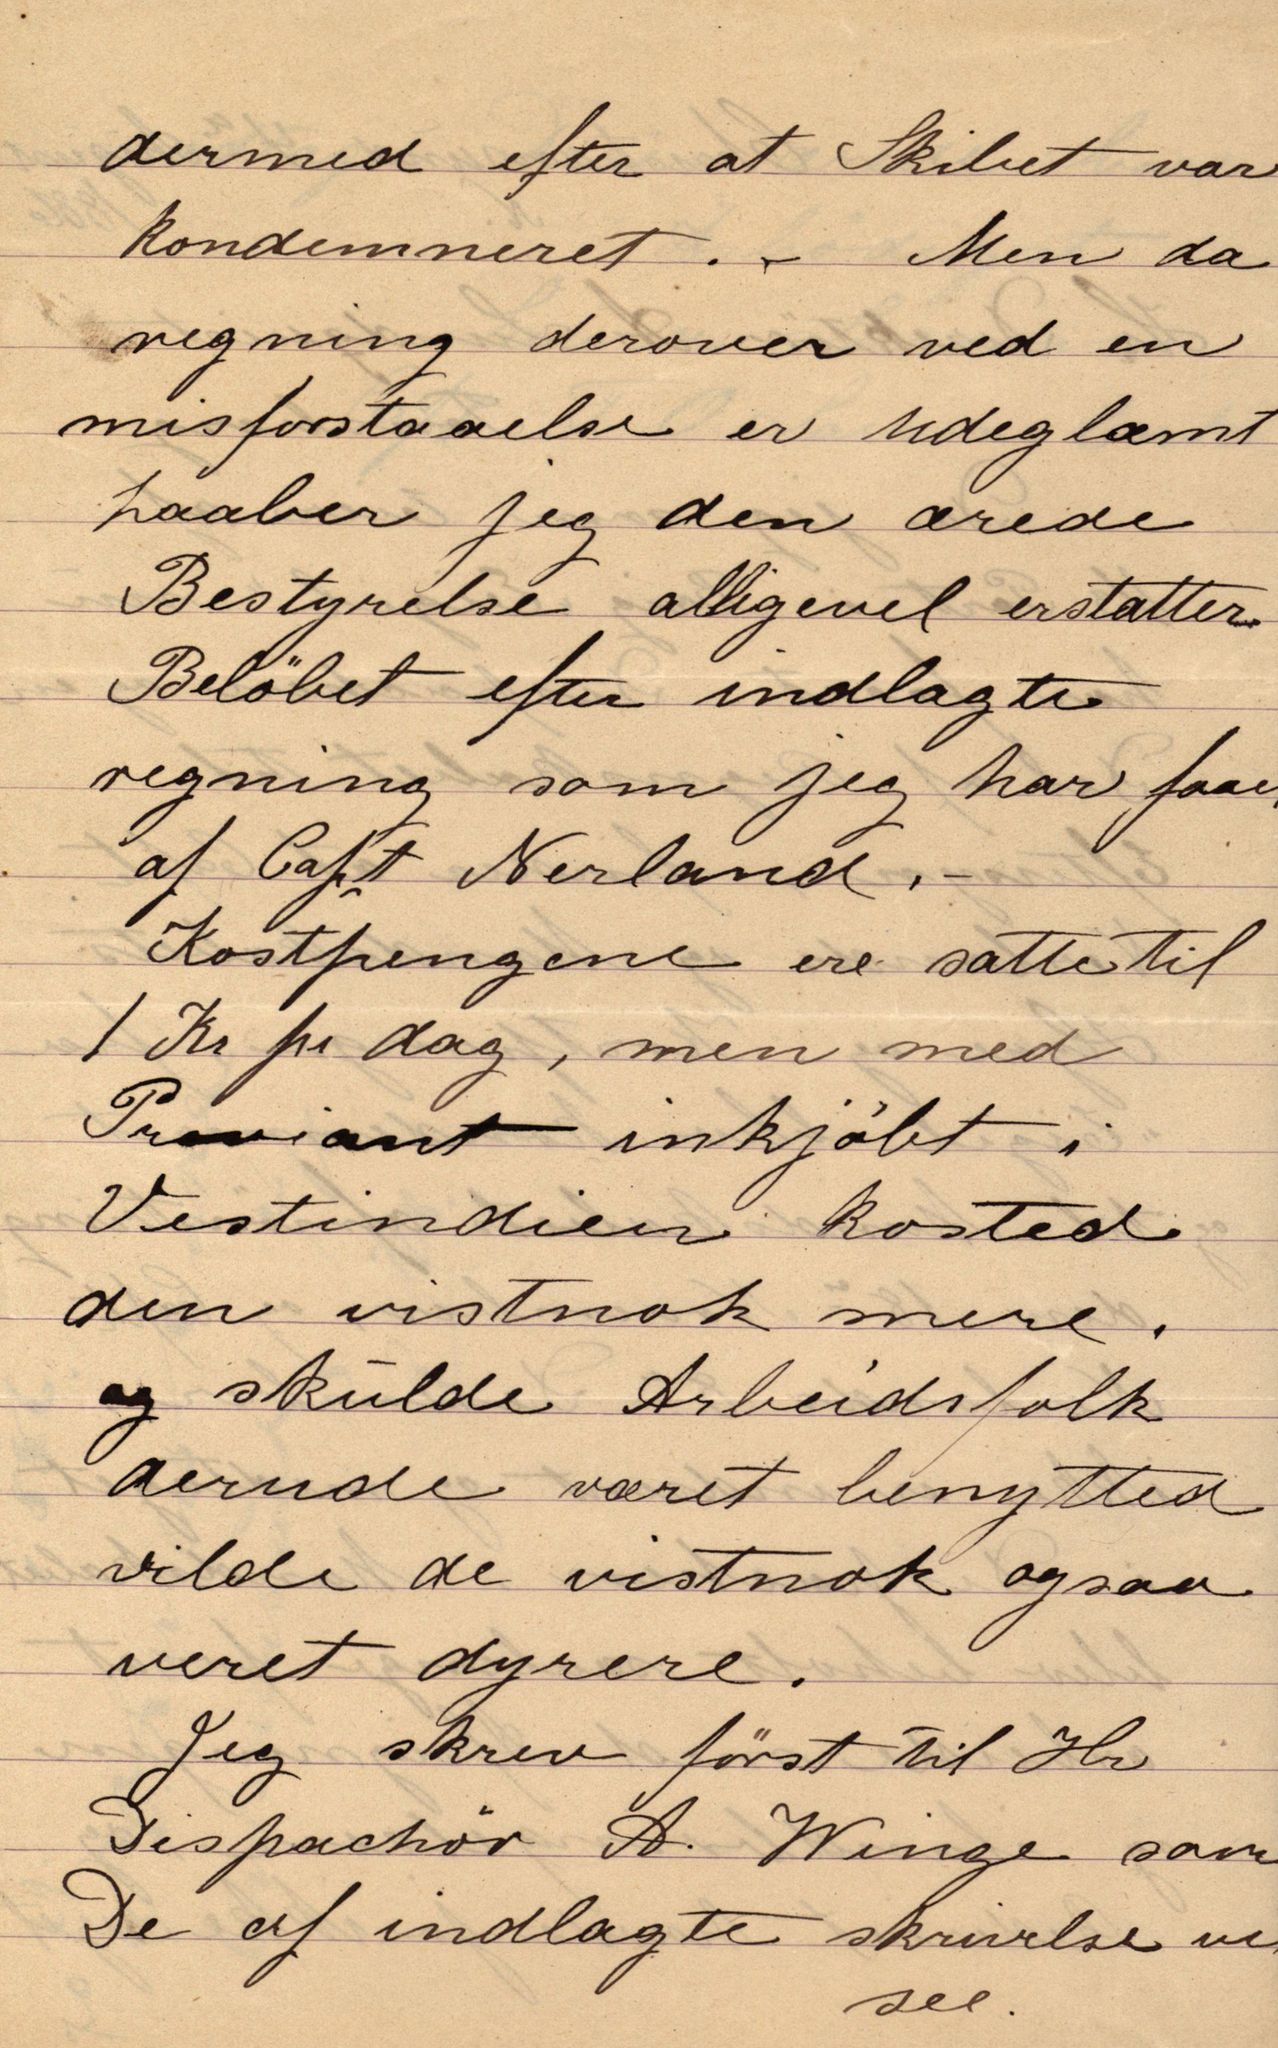 dermed efter at Skibet var
kondemneret. – Men da
regning derover ved en
misforstaaelse er udeglamt
haaber jeg den ærede
Bestyrelse alligevel erstatter
Belöbet efter indlagte
regning som jeg har faae
af Capt Nerland. –
Kostpengene ere satte til
1 Kr pr dag, men med
Proviant inkjöbt i
Vestindien kosted
den vistnok mere.
og skulde Arbeidsfolk
derude været benytted
vilde de vistnok ogsaa
veret dyrere.
Jeg skrev först til Hr
Dispachör A. Winge som
De af indlagte skrivelse
see.